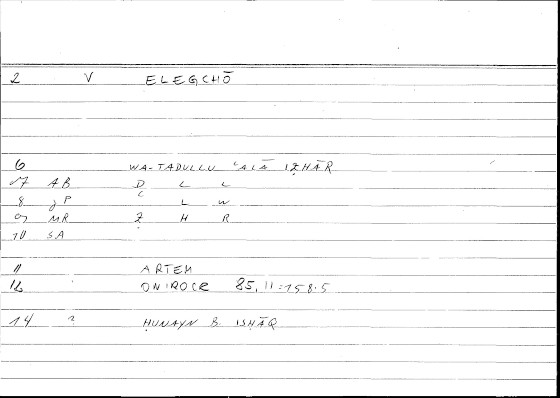 2 V ELEGCHŌ
6 WA-TADULLU ʿALĀ IẒHĀR
07 AB D L L
8 P ʿ L W
09 MR Ẓ H R
10 SA
11 ARTEM
12 ONIROCR 85,11:158.5
14 ? ḤUNAYN B. ISḤĀQ